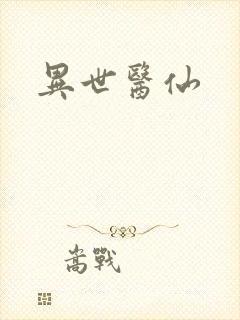 異世醫仙
嵩戰